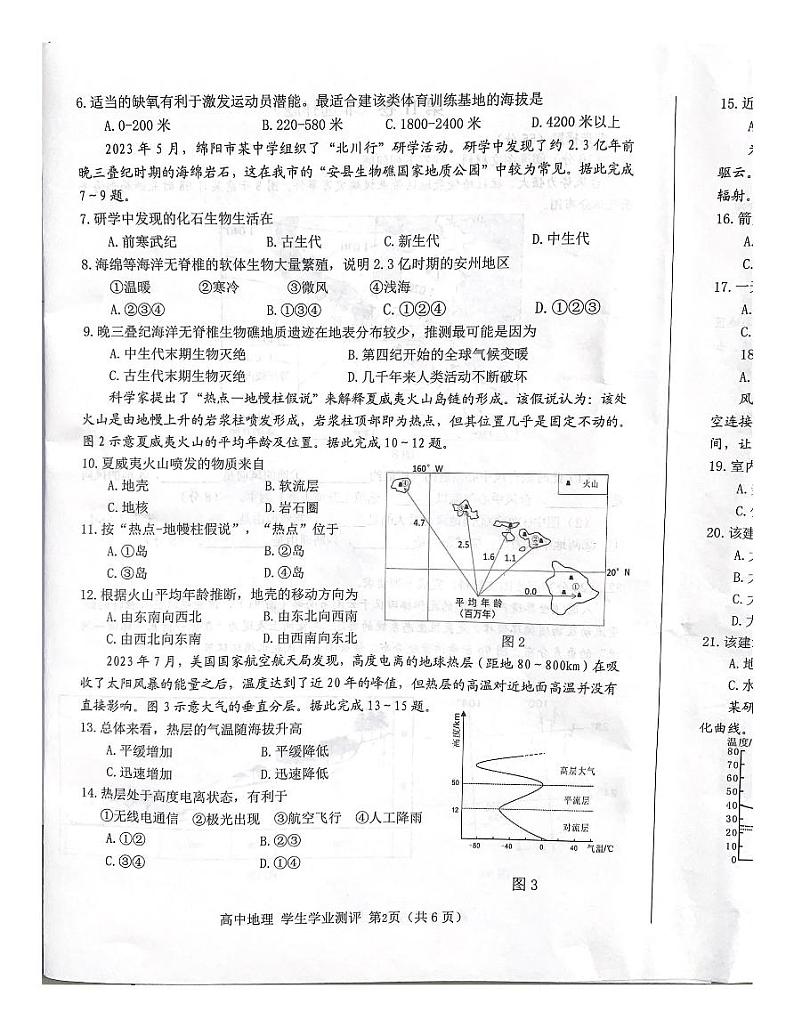 6. 适当的缺氧有利于激发运动员潜能。最适合建该类体育训练基地的海拔是
A. 0-200 米 B. 220-580 米 C. 1800-2400 米 D. 4200 米以上
2023 年 5 月，绵阳市某中学组织了“北川行”研学活动。研学中发现了约 2.3 亿年前
晚三叠纪时期的海绵岩石，这在我市的“安县生物礁国家地质公园”中较为常见。据此完成
7～9 题。
7. 研学中发现的化石生物生活在
A. 前寒武纪 B. 古生代 C. 新生代 D. 中生代
8. 海绵等海洋无脊椎的软体生物大量繁殖，说明 2.3 亿时期的安州地区
①温暖 ②寒冷 ③微风 ④浅海
A. ②③④ B. ①③④ C. ①②④ D. ①②③
9. 晚三叠纪海洋无脊椎生物礁地质遗迹在地表分布较少，推测最可能是因为
A. 中生代末期生物灭绝 B. 第四纪开始的全球气候变暖
C. 古生代末期生物灭绝 D. 几千年来人类活动不断破坏
科学家提出了“热点—地幔柱假说”来解释夏威夷火山岛链的形成。该假说认为：该处
火山是由地幔上升的岩浆柱喷发形成，岩浆柱顶部即为热点，但其位置几乎是固定不动的。
图 2 示意夏威夷火山的平均年龄及位置。据此完成 10～12 题。
10. 夏威夷火山喷发的物质来自
A. 地壳 B. 软流层
C. 地核 D. 岩石圈
11. 按“热点-地幔柱假说”，“热点”位于
A. ①岛 B. ②岛
C. ③岛 D. ④岛
12. 根据火山平均年龄推断，地壳的移动方向为
A. 由东南向西北 B. 由东北向西南
C. 由西北向东南 D. 由西南向东北
160° W
火山
4.7
2.5
1.6 1.1
0.0
①
20° N
平均年龄
（百万年）
图 2
2023 年 7 月，美国国家航空航天局发现，高度电离的地球热层（距地 80～800km）在吸
收了太阳风暴的能量之后，温度达到了近 20 年的峰值，但热层的高温对近地面高温并没有
直接影响。图 3 示意大气的垂直分层。据此完成 13～15 题。
13. 总体来看，热层的气温随海拔升高
A. 平缓增加 B. 平缓降低
C. 迅速增加 D. 迅速降低
14. 热层处于高度电离状态，有利于
①无线电通信 ②极光出现 ③航空飞行 ④人工降雨
A. ①② B. ②③
C. ③④ D. ①④
高度/km
高层大气
50
平流层
12
对流层
-80 -40 0 40 气温/℃
图 3
高中地理 学生学业测评 第2页（共 6 页）
15. 近
A
驱云。
辐射。
16. 箭
A.
C.
17. 一
A.
C.
18
A.
风
空连接
间，让
19. 室内
A.
C.
20. 该建
A.
B.
C.
D.
21. 该建
A. 地
C. 水
某研
化曲线。
温度/
80
70
60
50
40
30
20
10
0